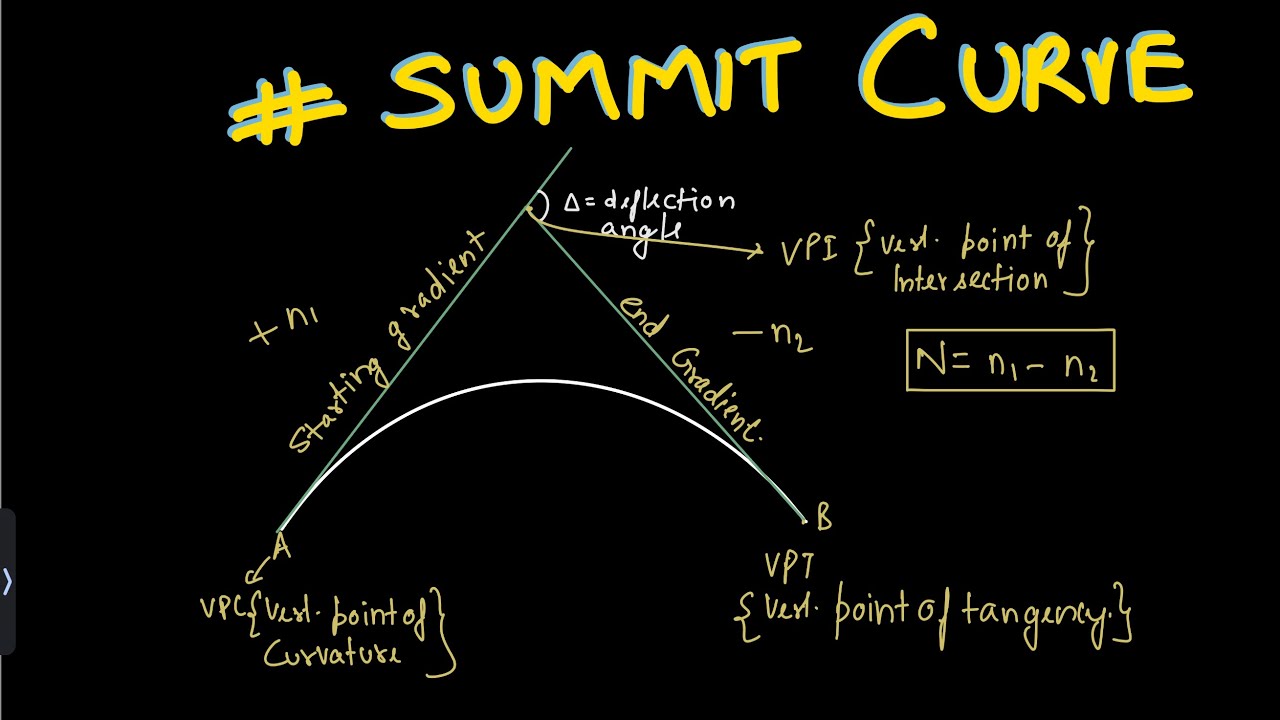 # SUMMIT CURVE
Δ = deflection
angle
VPI {Vert. point of
Intersection}
+ n1
Starting gradient
end Gradient.
- n2
N = n1 - n2
A
B
VPC {Vert. point of
Curvature}
VPT
{Vert. point of tangency.}